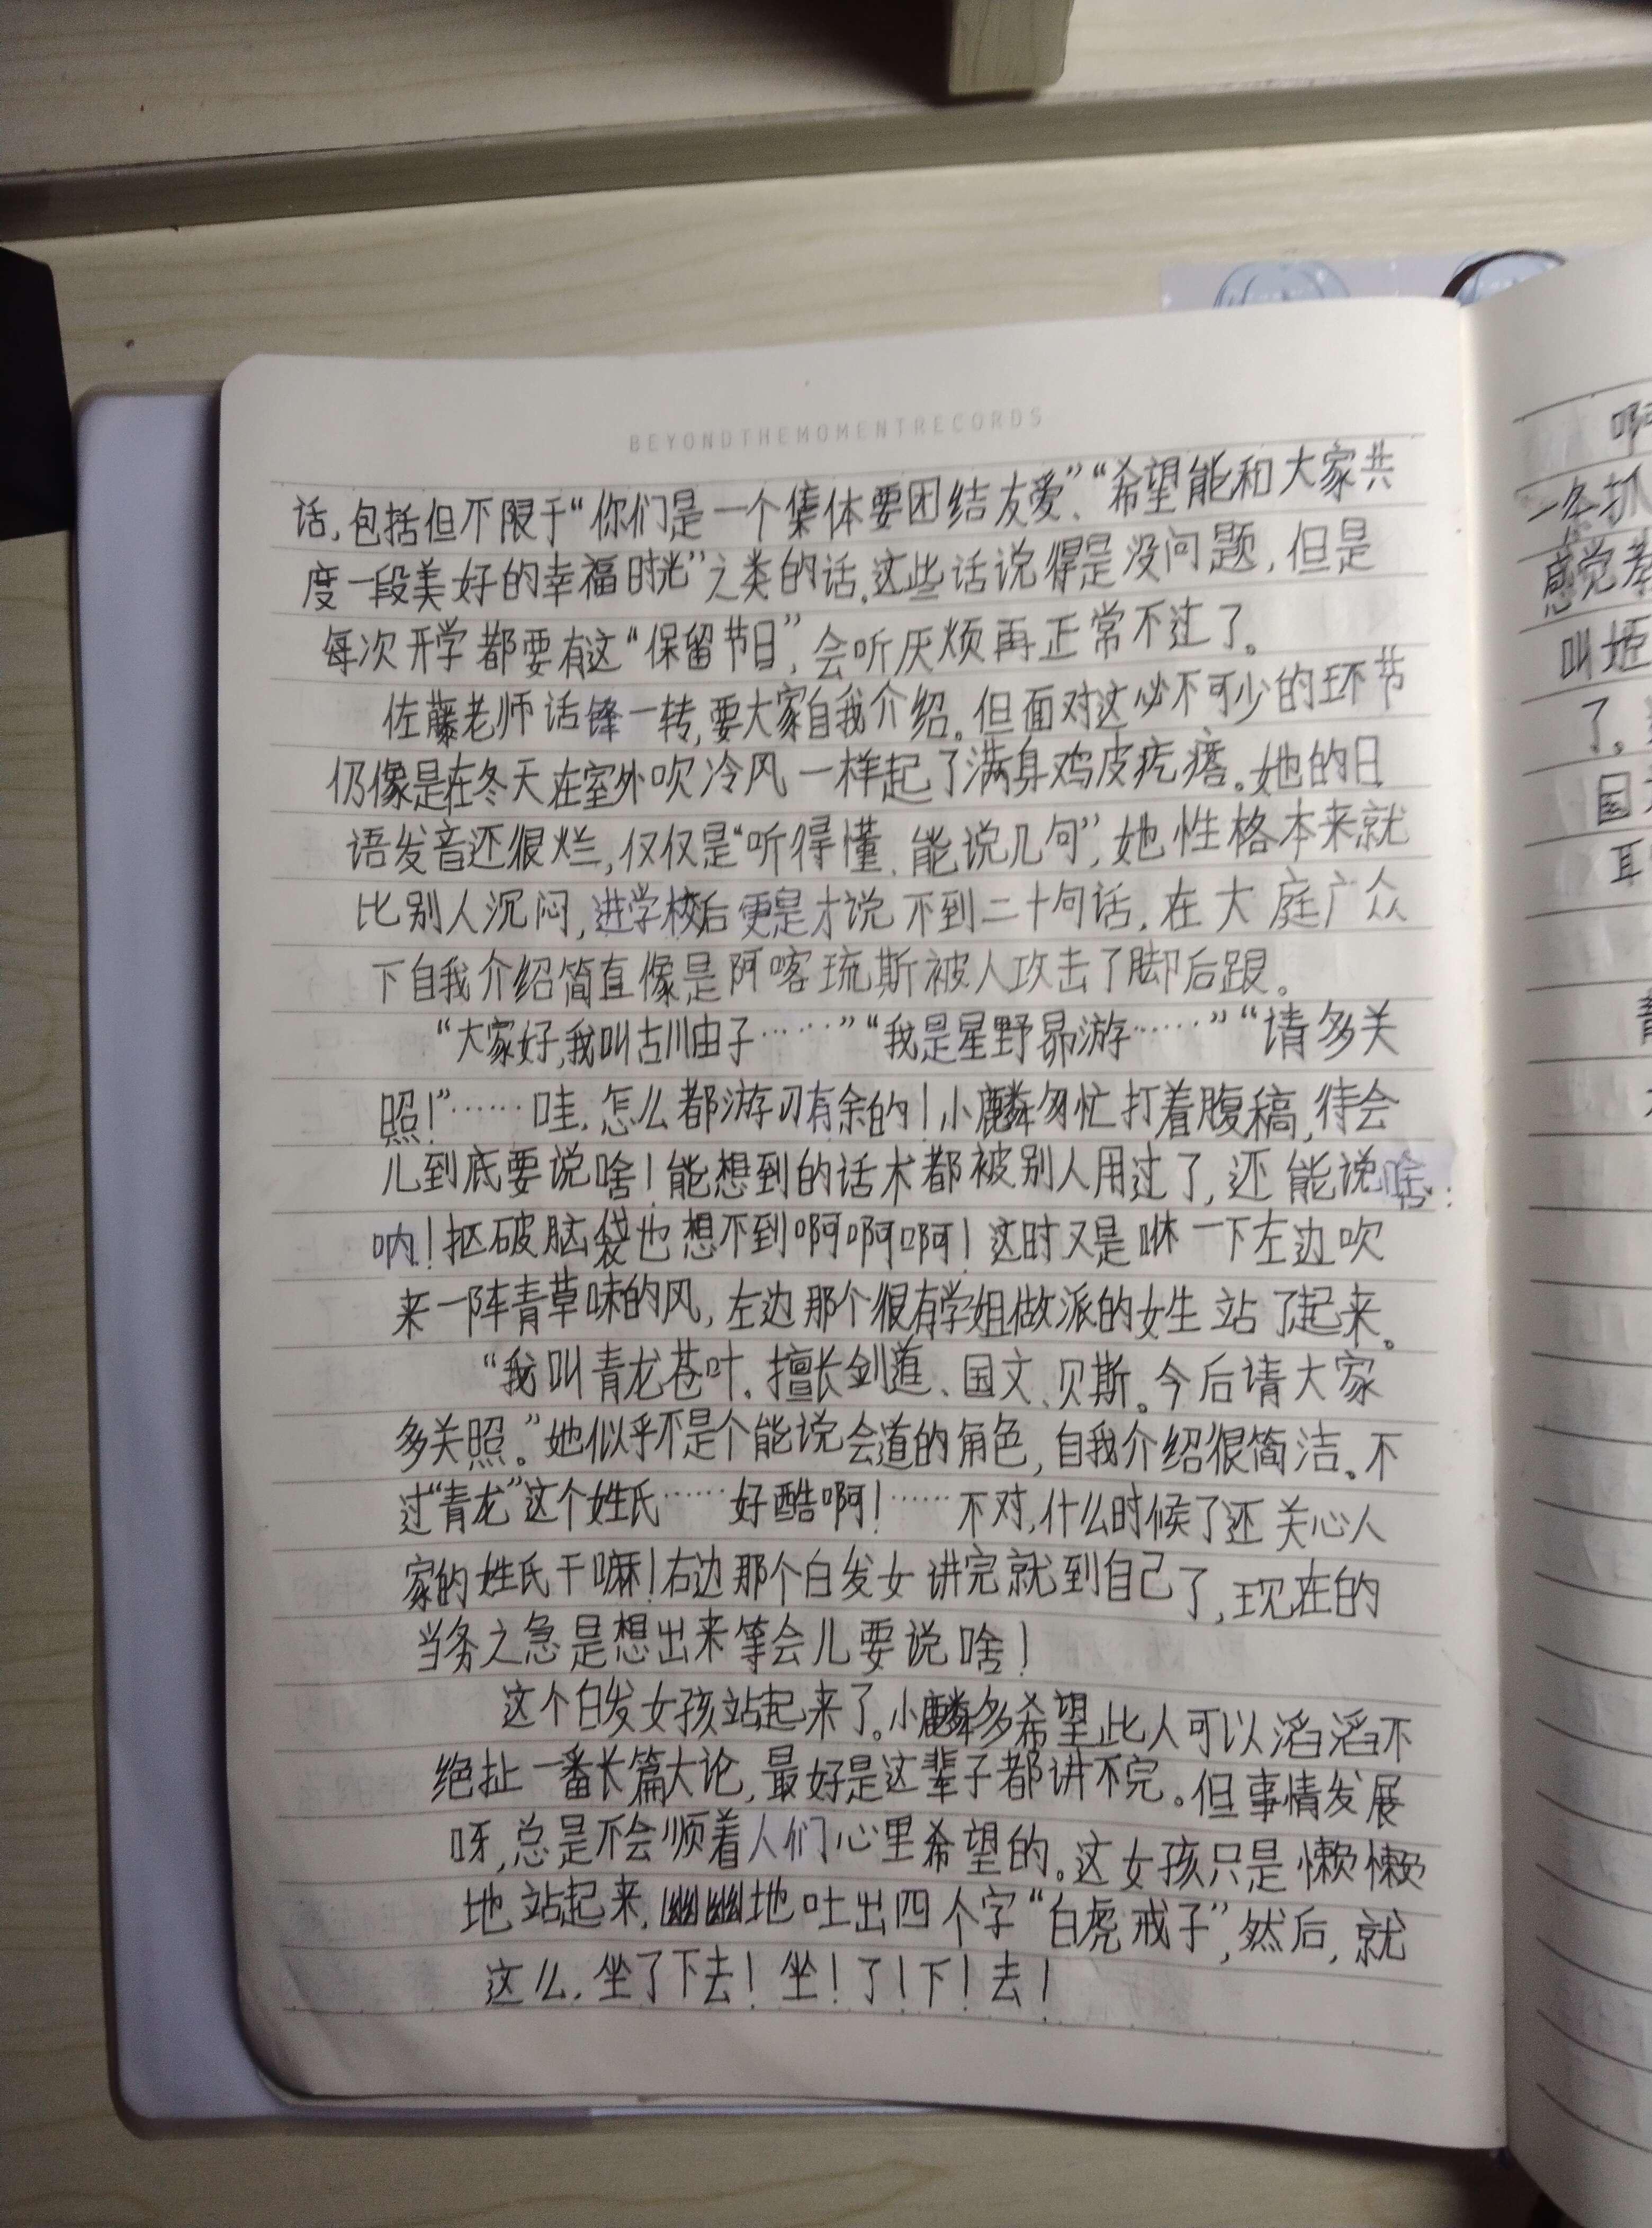 BEYONDTHEMOMENTRECORDS
话,包括但不限于“你们是一个集体要团结友爱”、“希望能和大家共
度一段美好的幸福时光”之类的话。这些话说得是没问题,但是
每次开学都要有这“保留节目”,会听厌烦再正常不过了。
佐藤老师话锋一转,要大家自我介绍。但面对这必不可少的环节
仍像是在冬天在室外吹冷风一样起了满身鸡皮疙瘩。她的日
语发音还很烂,仅仅是“听得懂、能说几句”,她性格本来就
比别人沉闷,进学校后更是才说不到二十句话,在大庭广众
下自我介绍简直像是阿喀琉斯被人攻击了脚后跟。
“大家好,我叫古川由子……”“我是星野昴游……”“请多关
照!”……哇,怎么都游刃有余的!小麟匆忙打着腹稿,待会
儿到底要说啥!能想到的话术都被别人用过了,还能说啥
呐!抠破脑袋也想不到啊啊啊!这时又是咻一下左边吹
来一阵青草味的风,左边那个很有学姐做派的女生站了起来。
“我叫青龙苍叶。擅长剑道、国文、贝斯。今后请大家
多关照。”她似乎不是个能说会道的角色,自我介绍很简洁。不
过“青龙”这个姓氏……好酷啊!……不对,什么时候了还关心人
家的姓氏干嘛!右边那个白发女讲完就到自己了,现在的
当务之急是想出来等会儿要说啥!
这个白发女孩站起来了。小麟多希望此人可以滔滔不
绝扯一番长篇大论,最好是这辈子都讲不完。但事情发展
呀,总是不会顺着人们心里希望的。这女孩只是懒懒
地站起来,幽幽地吐出四个字“白虎戒子”,然后,就
这么,坐了下去!坐!了!下!去!
啊
一条抓
感觉
叫姬
了。
国
耳